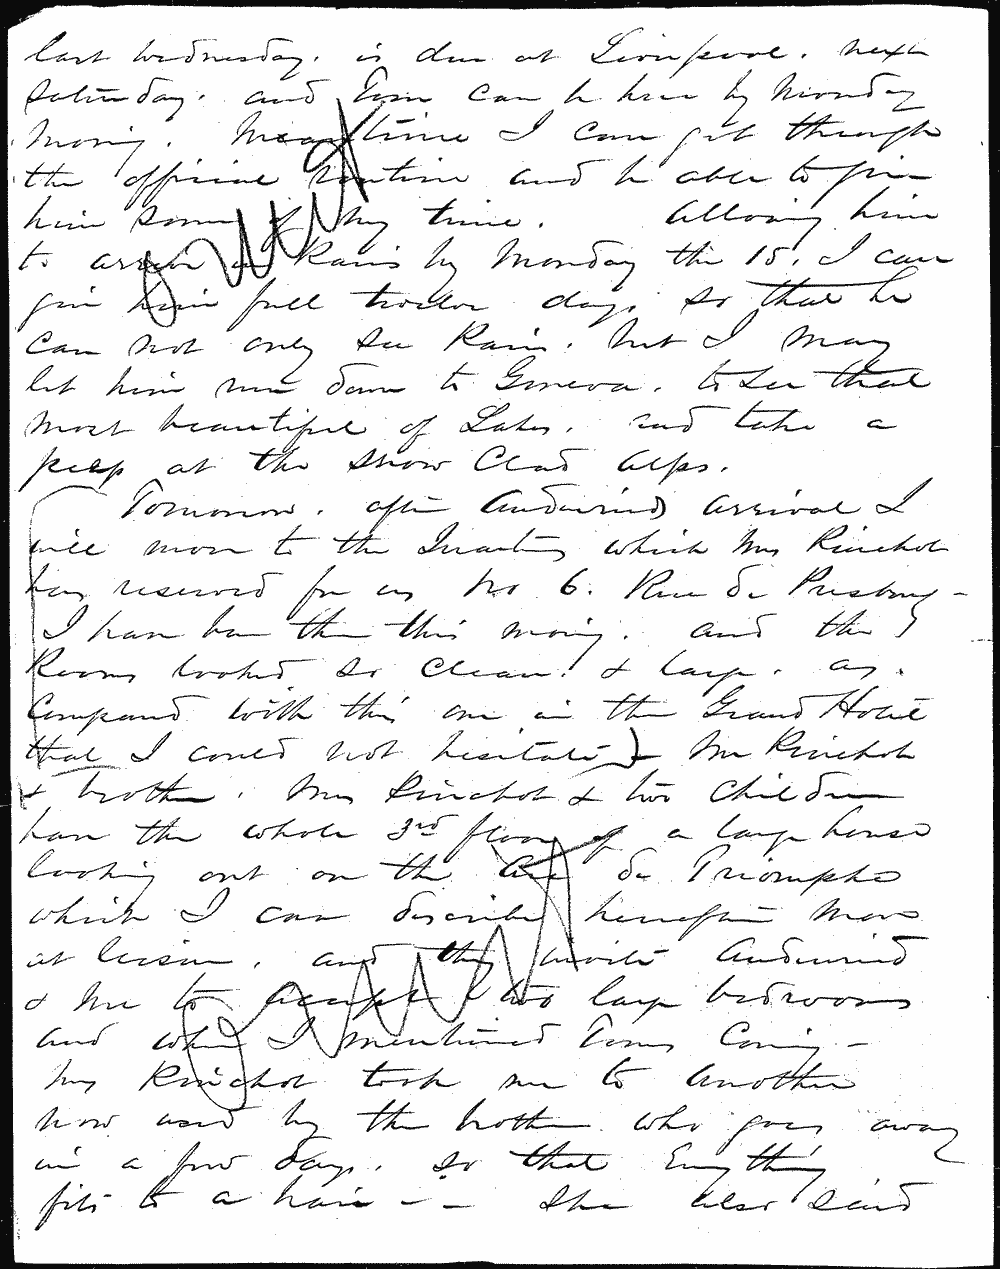 last Wednesday. is due at Liverpool. next
Saturday. and Tom can be here by Monday
Morning. Meantime I can get through
the official routine and be able to give
him some of my time. Allowing him
to arrive at Paris by Monday the 15. I can
give him full twelve days, so that he
can not only see Paris, but I may
let him run down to Geneva, to see that
most beautiful of Lakes, and take a
peep at the snow clad Alps.
Tomorrow, after Audenried's arrival I
will move to the Quarters which Mrs Pinchot
has reserved for us No 6. Rue de Presbourg -
I have been there this morning. and the
Rooms looked so clean! & large. as.
compared with this one in the Grand Hotel
that I could not hesitate & Mr Pinchot
& brother. Mrs Pinchot & two children
have the whole 3rd floor of a large house
looking out on the Arc de Triomphe
which I can describe hereafter more
at leisure, and they invite Audenried
& me to accept two large bedrooms
and when I mentioned Toms Coming -
Mrs Pinchot took me to another
now used by the brother who goes away
in a few days. so that Every thing
fits to a hair - - She also said
omit
omit